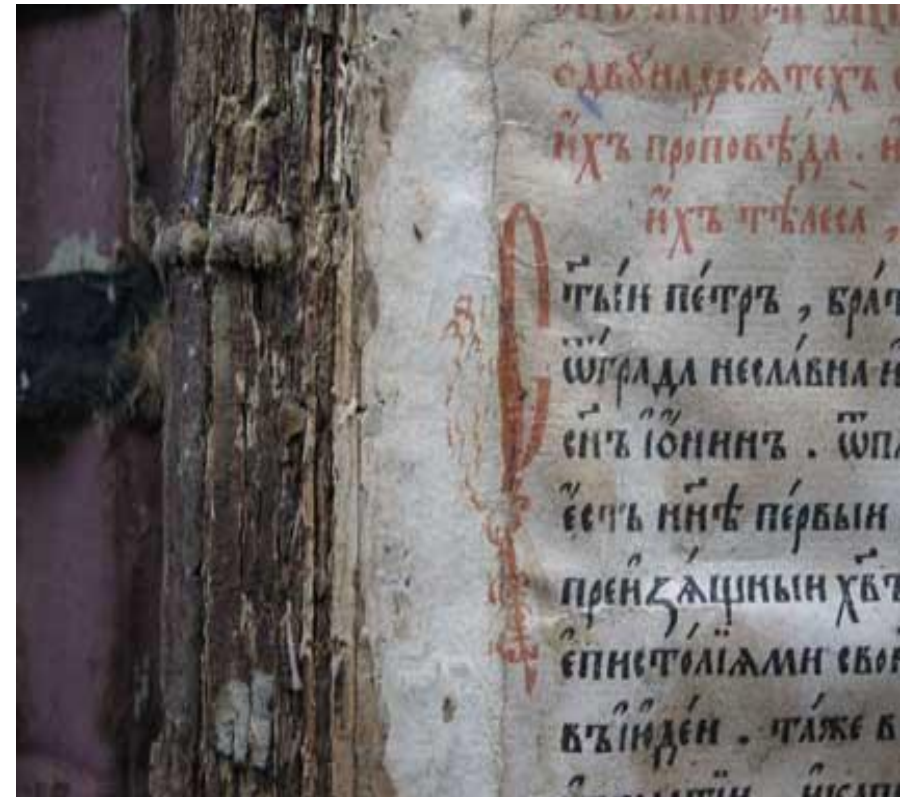 ѻ҆двꙋна́десѧтехъ
и҆́хъ проповѣ́да . и҆
и҆́хъ тѣлеса̀ ,
С
ты́и пе́тръ , бра́т
ѿгра́да несла́вна и҆
сн҃ъ і҆ѡ́нинъ . ѿ
є҆́сть нн҃ѣ пе́рвыи
преизѧ́щныи хв҃ъ
є҆писто́лїѧми свои
въ і҆ю҆де́и . та́же в